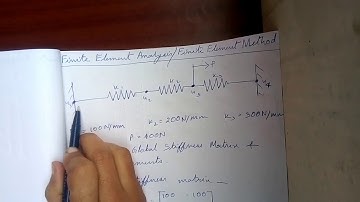 Finite Element Analysis/Finite Element Method
K1 K2 P K3
u2 u3 u4
= 100N/mm K2 = 200N/mm K3 = 300N/mm
P = 400N
Global Stiffness Matrix &
ments
stiffness matrix
100 -100